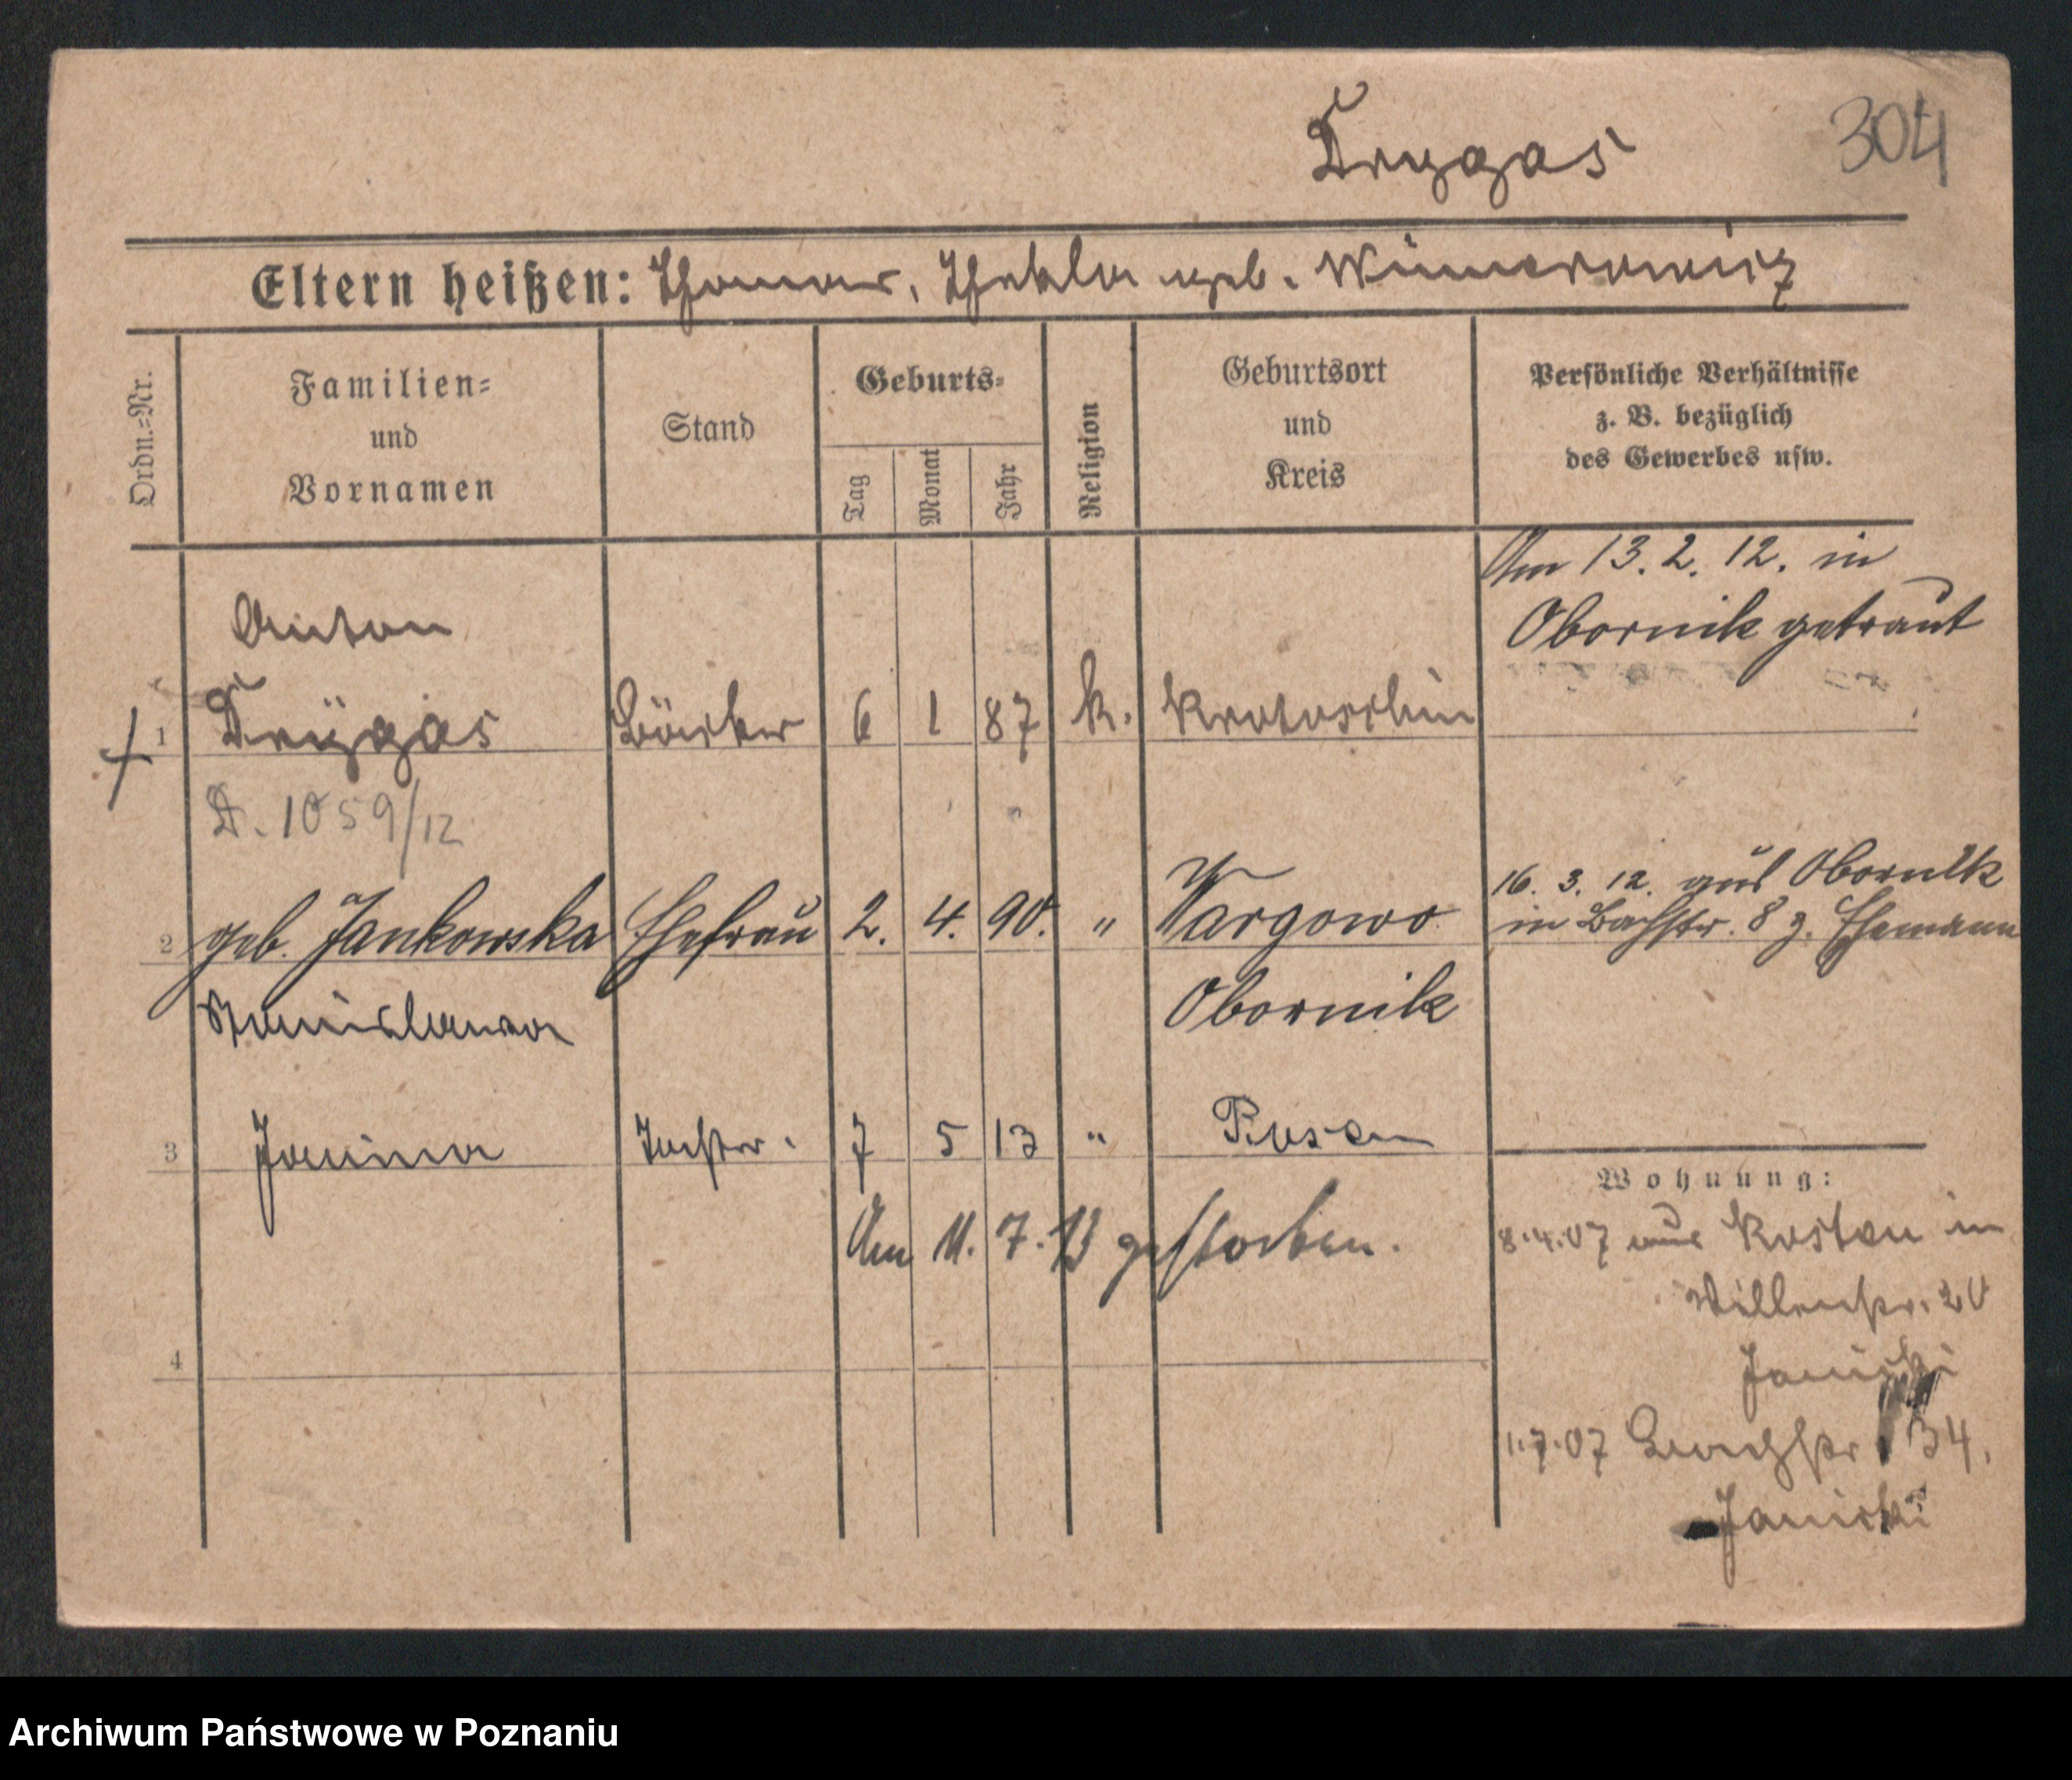 Drygas
304
Eltern heißen: Thomas, Thekla geb.
Ordn.-Nr.
Familien-
und
Vornamen
Stand
Geburts-
Tag
Monat
Jahr
Religion
Geburtsort
und
Kreis
Persönliche Verhältnisse
z. B. bezüglich
des Gewerbes usw.
Am 13. 2. 12. in
Obornik getraut
Anton
1 Drygas Bäcker 6 1 87 k. Krotoschin
D. 1059/12
16. 3. 12. aus Obornik
2 geb. Jankowska Ehefrau 2. 4. 90. " Wargowo in Bachstr. 8 z. Ehemann
Stanislawa
Obornik
3 Janina Tochter. 7 5 13 " Posen
Am 11. 7. 13 gestorben.
4
Wohnung:
8.4.07 aus Kosten in
20
Janicki
1.7.07 34.
Janicki
Archiwum Państwowe w Poznaniu